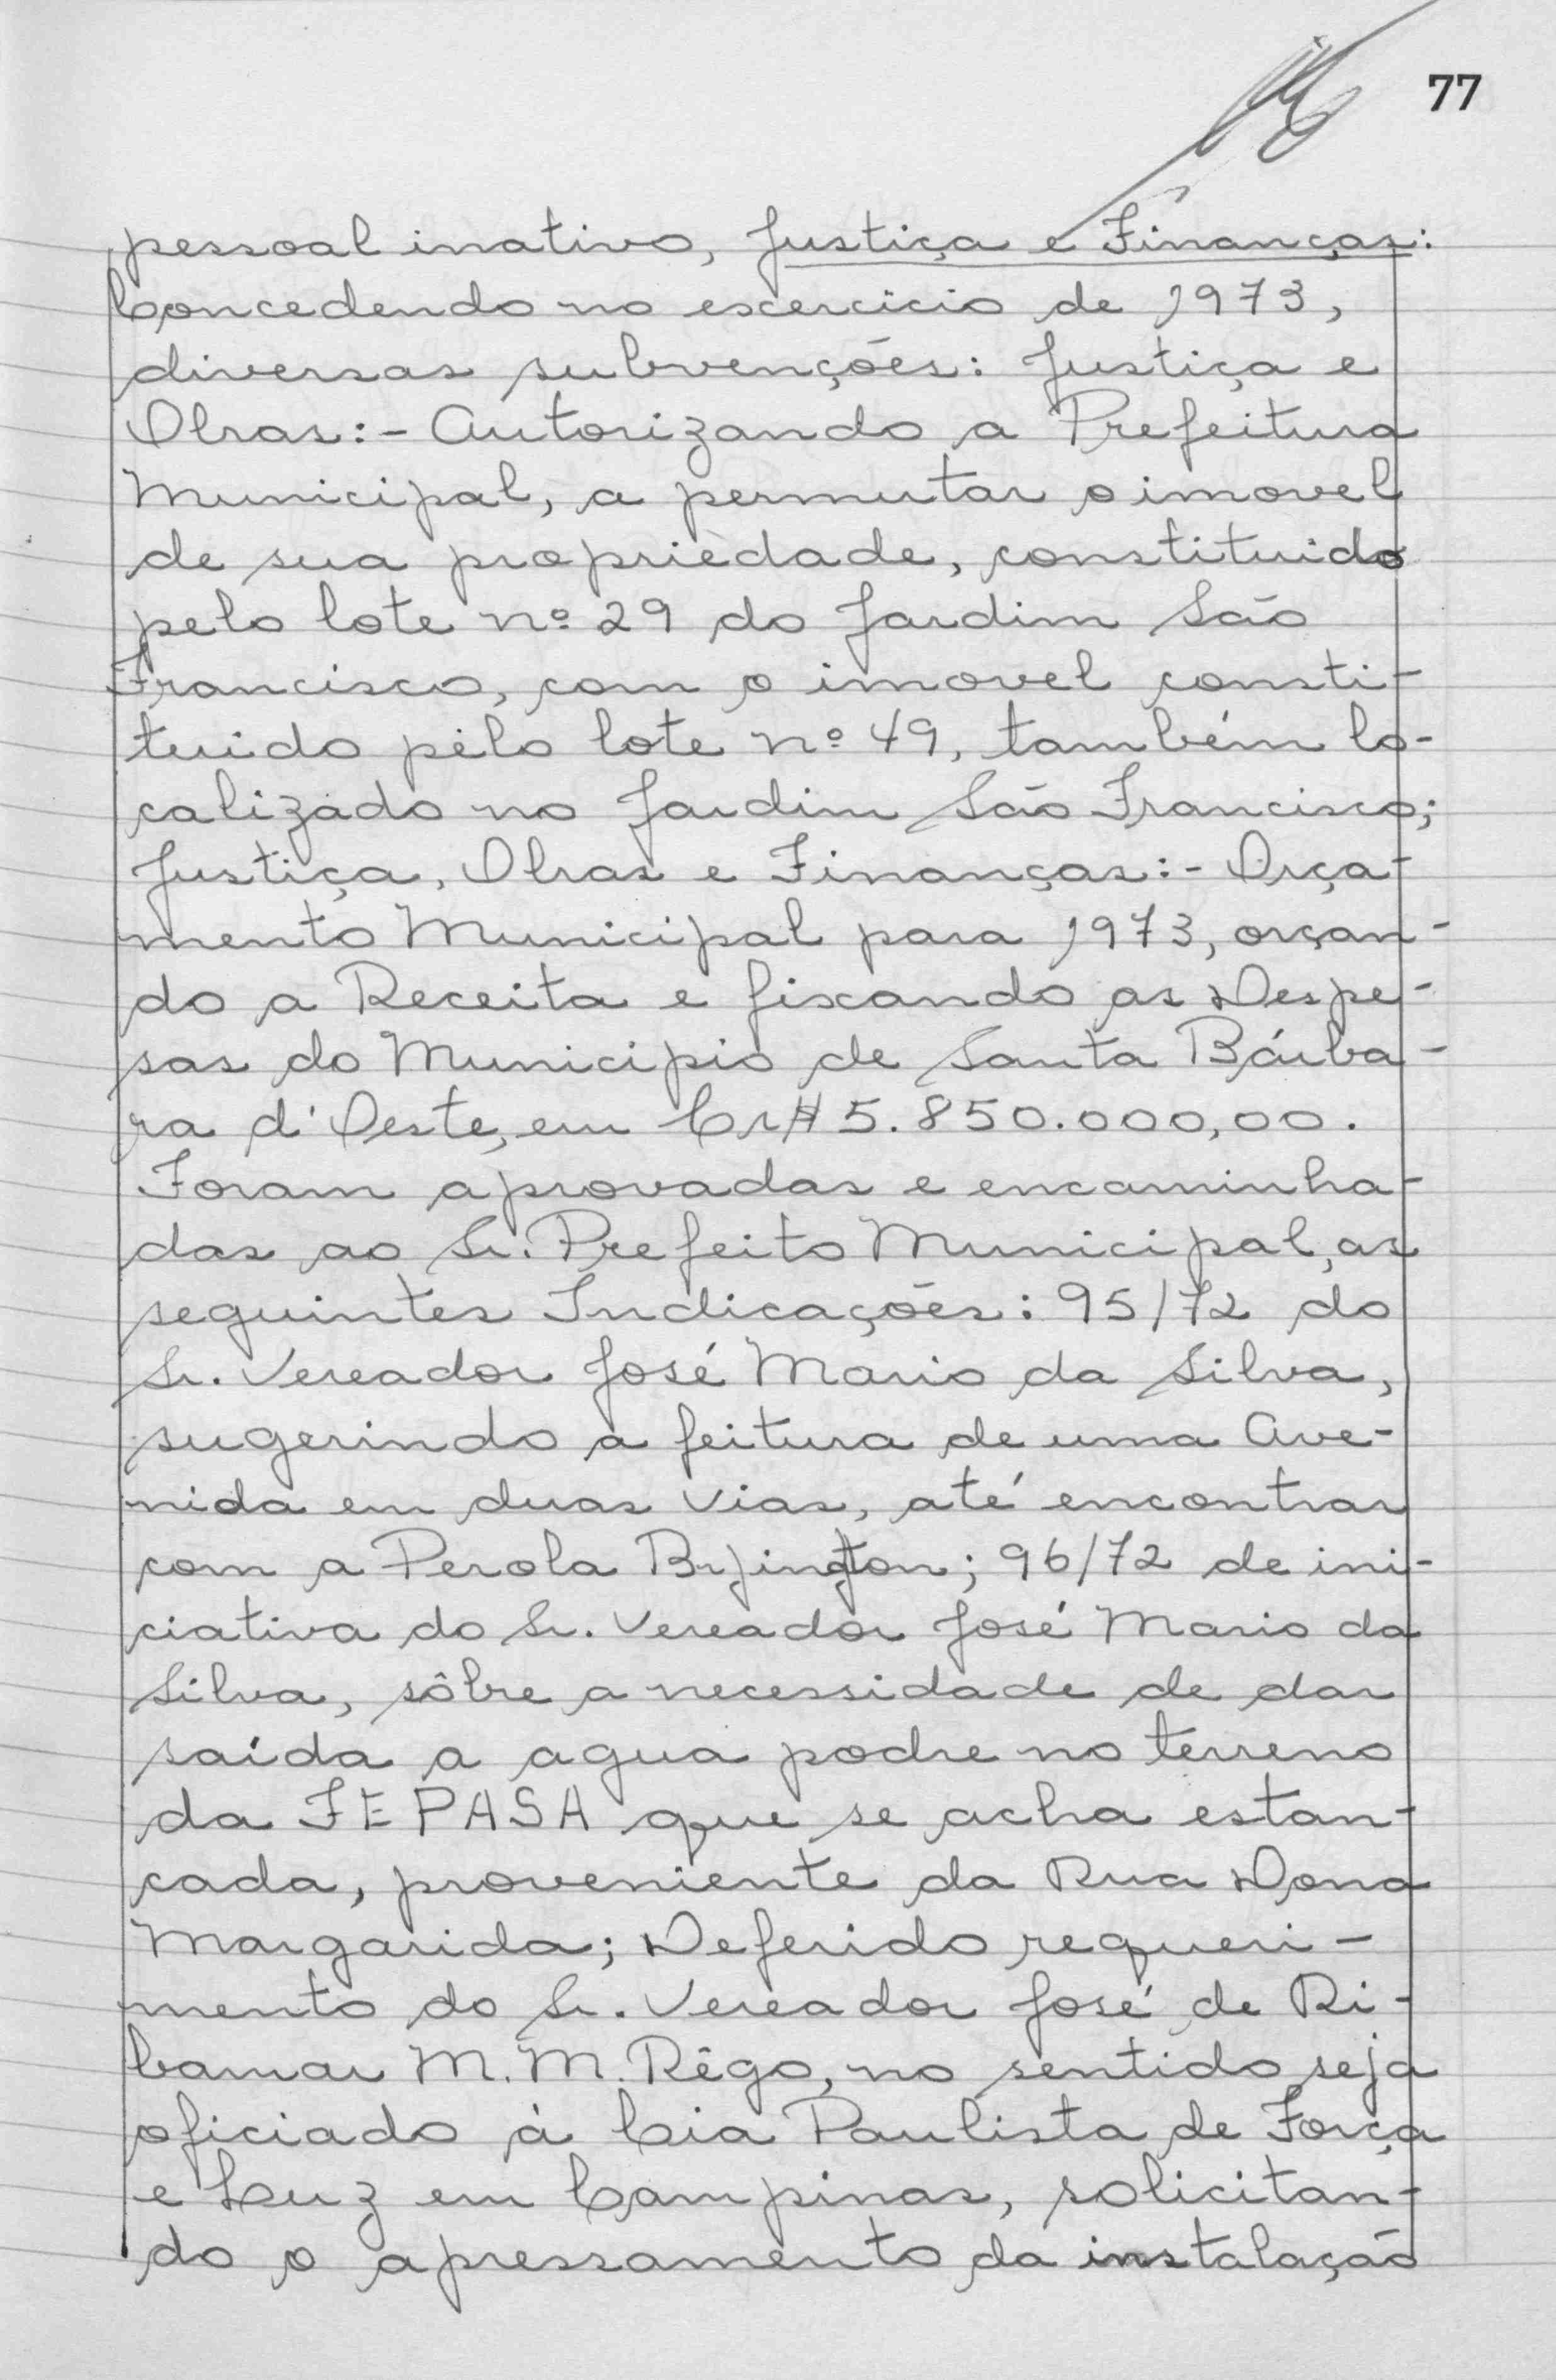 77
pessoal inativo, Justiça e Finanças:
Concedendo no escercicio de 1973,
diversas subvenções: Justiça e
Obras:- Autorizando a Prefeitura
Municipal, a permutar o imovel
de sua propriedade, constituido
pelo lote nº 29 do Jardim São
Francisco, com o imovel consti-
tuido pelo lote nº 49, também lo-
calizado no Jardim São Francisco;
Justiça, Obras e Finanças:- Orça-
mento Municipal para 1973, orçan-
do a Receita e fixando as Despe-
sas do Municipio de Santa Bárba-
ra d'Oeste, em Cr$ 5.850.000,00.
Foram aprovadas e encaminha-
das ao Sr. Prefeito Municipal, as
seguintes Indicações: 95/72 do
Sr. Vereador José Mario da Silva,
sugerindo a feitura de uma Ave-
nida em duas vias, até encontrar
com a Perola Byington; 96/72 de ini-
ciativa do Sr. Vereador José Mario da
Silva, sôbre a necessidade de dar
saída a agua podre no terreno
da FEPASA que se acha estan-
cada, proveniente da Rua Dona
Margarida; Deferido requeri-
mento do Sr. Vereador José de Ri-
bamar M. M. Rêgo, no sentido seja
oficiado à Cia Paulista de Força
e Luz em Campinas, solicitan-
do o apressamento da instalação